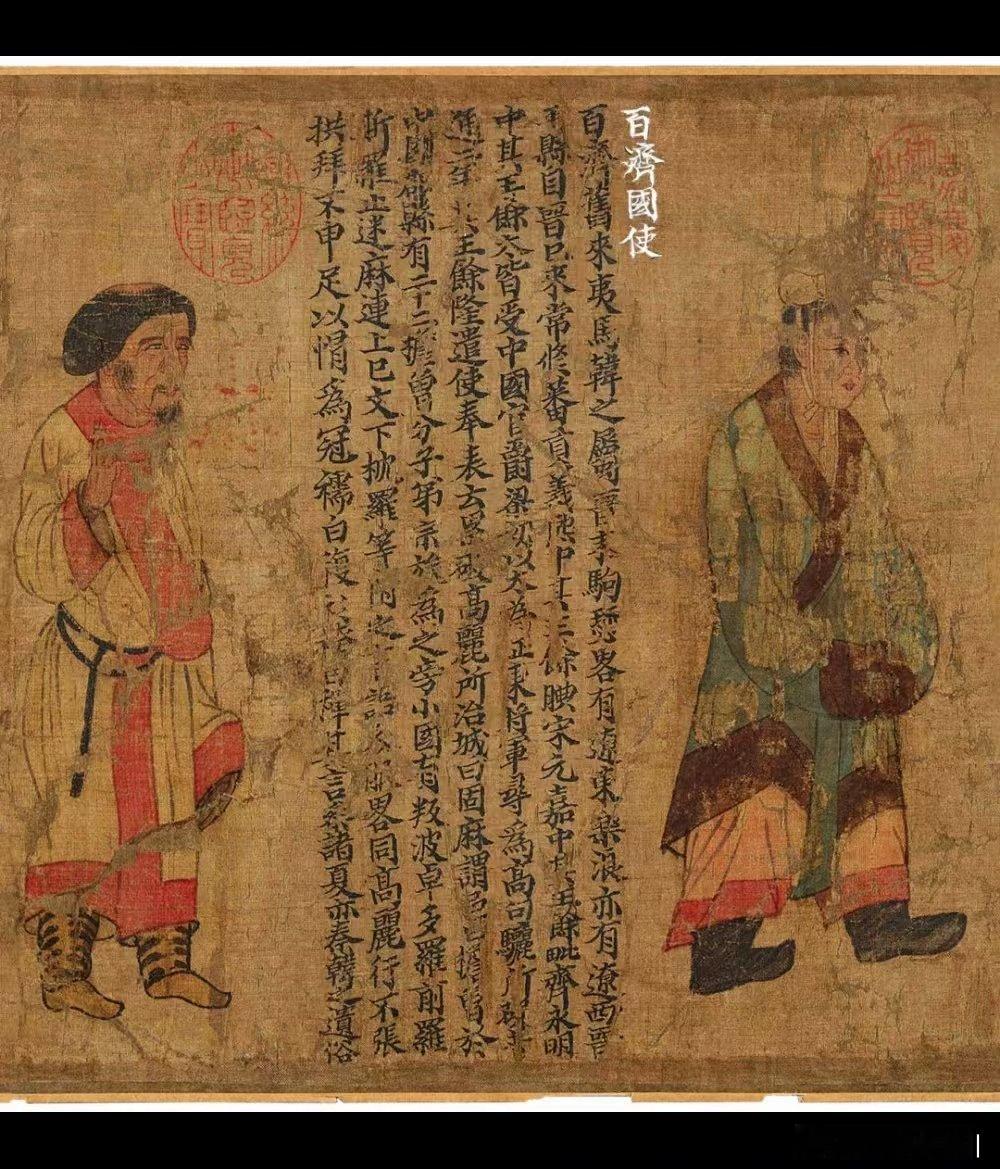 百濟國使
百濟舊來夷馬韓之屬晋末駒驪畧有遼東樂浪亦有遼西晋
平縣自晋已來常修蕃貢義熙中其王餘腆宋元嘉中其王餘毗齊永明
中其王餘太皆受中國官爵梁初以太為征東將軍尋為高句驪所破普
通二年其王餘隆遣使奉表云累破高麗所治城曰固麻謂邑曰擔魯於
中國郡縣有二十二擔魯分子弟宗族為之旁小國有叛波卓多羅前羅
斯羅止迷麻連上巳文下枕羅等附之言語衣服畧同高麗行不張
拱拜不申足以帽為冠襦曰複衫袴曰褌其言參諸夏亦秦韓之遺俗